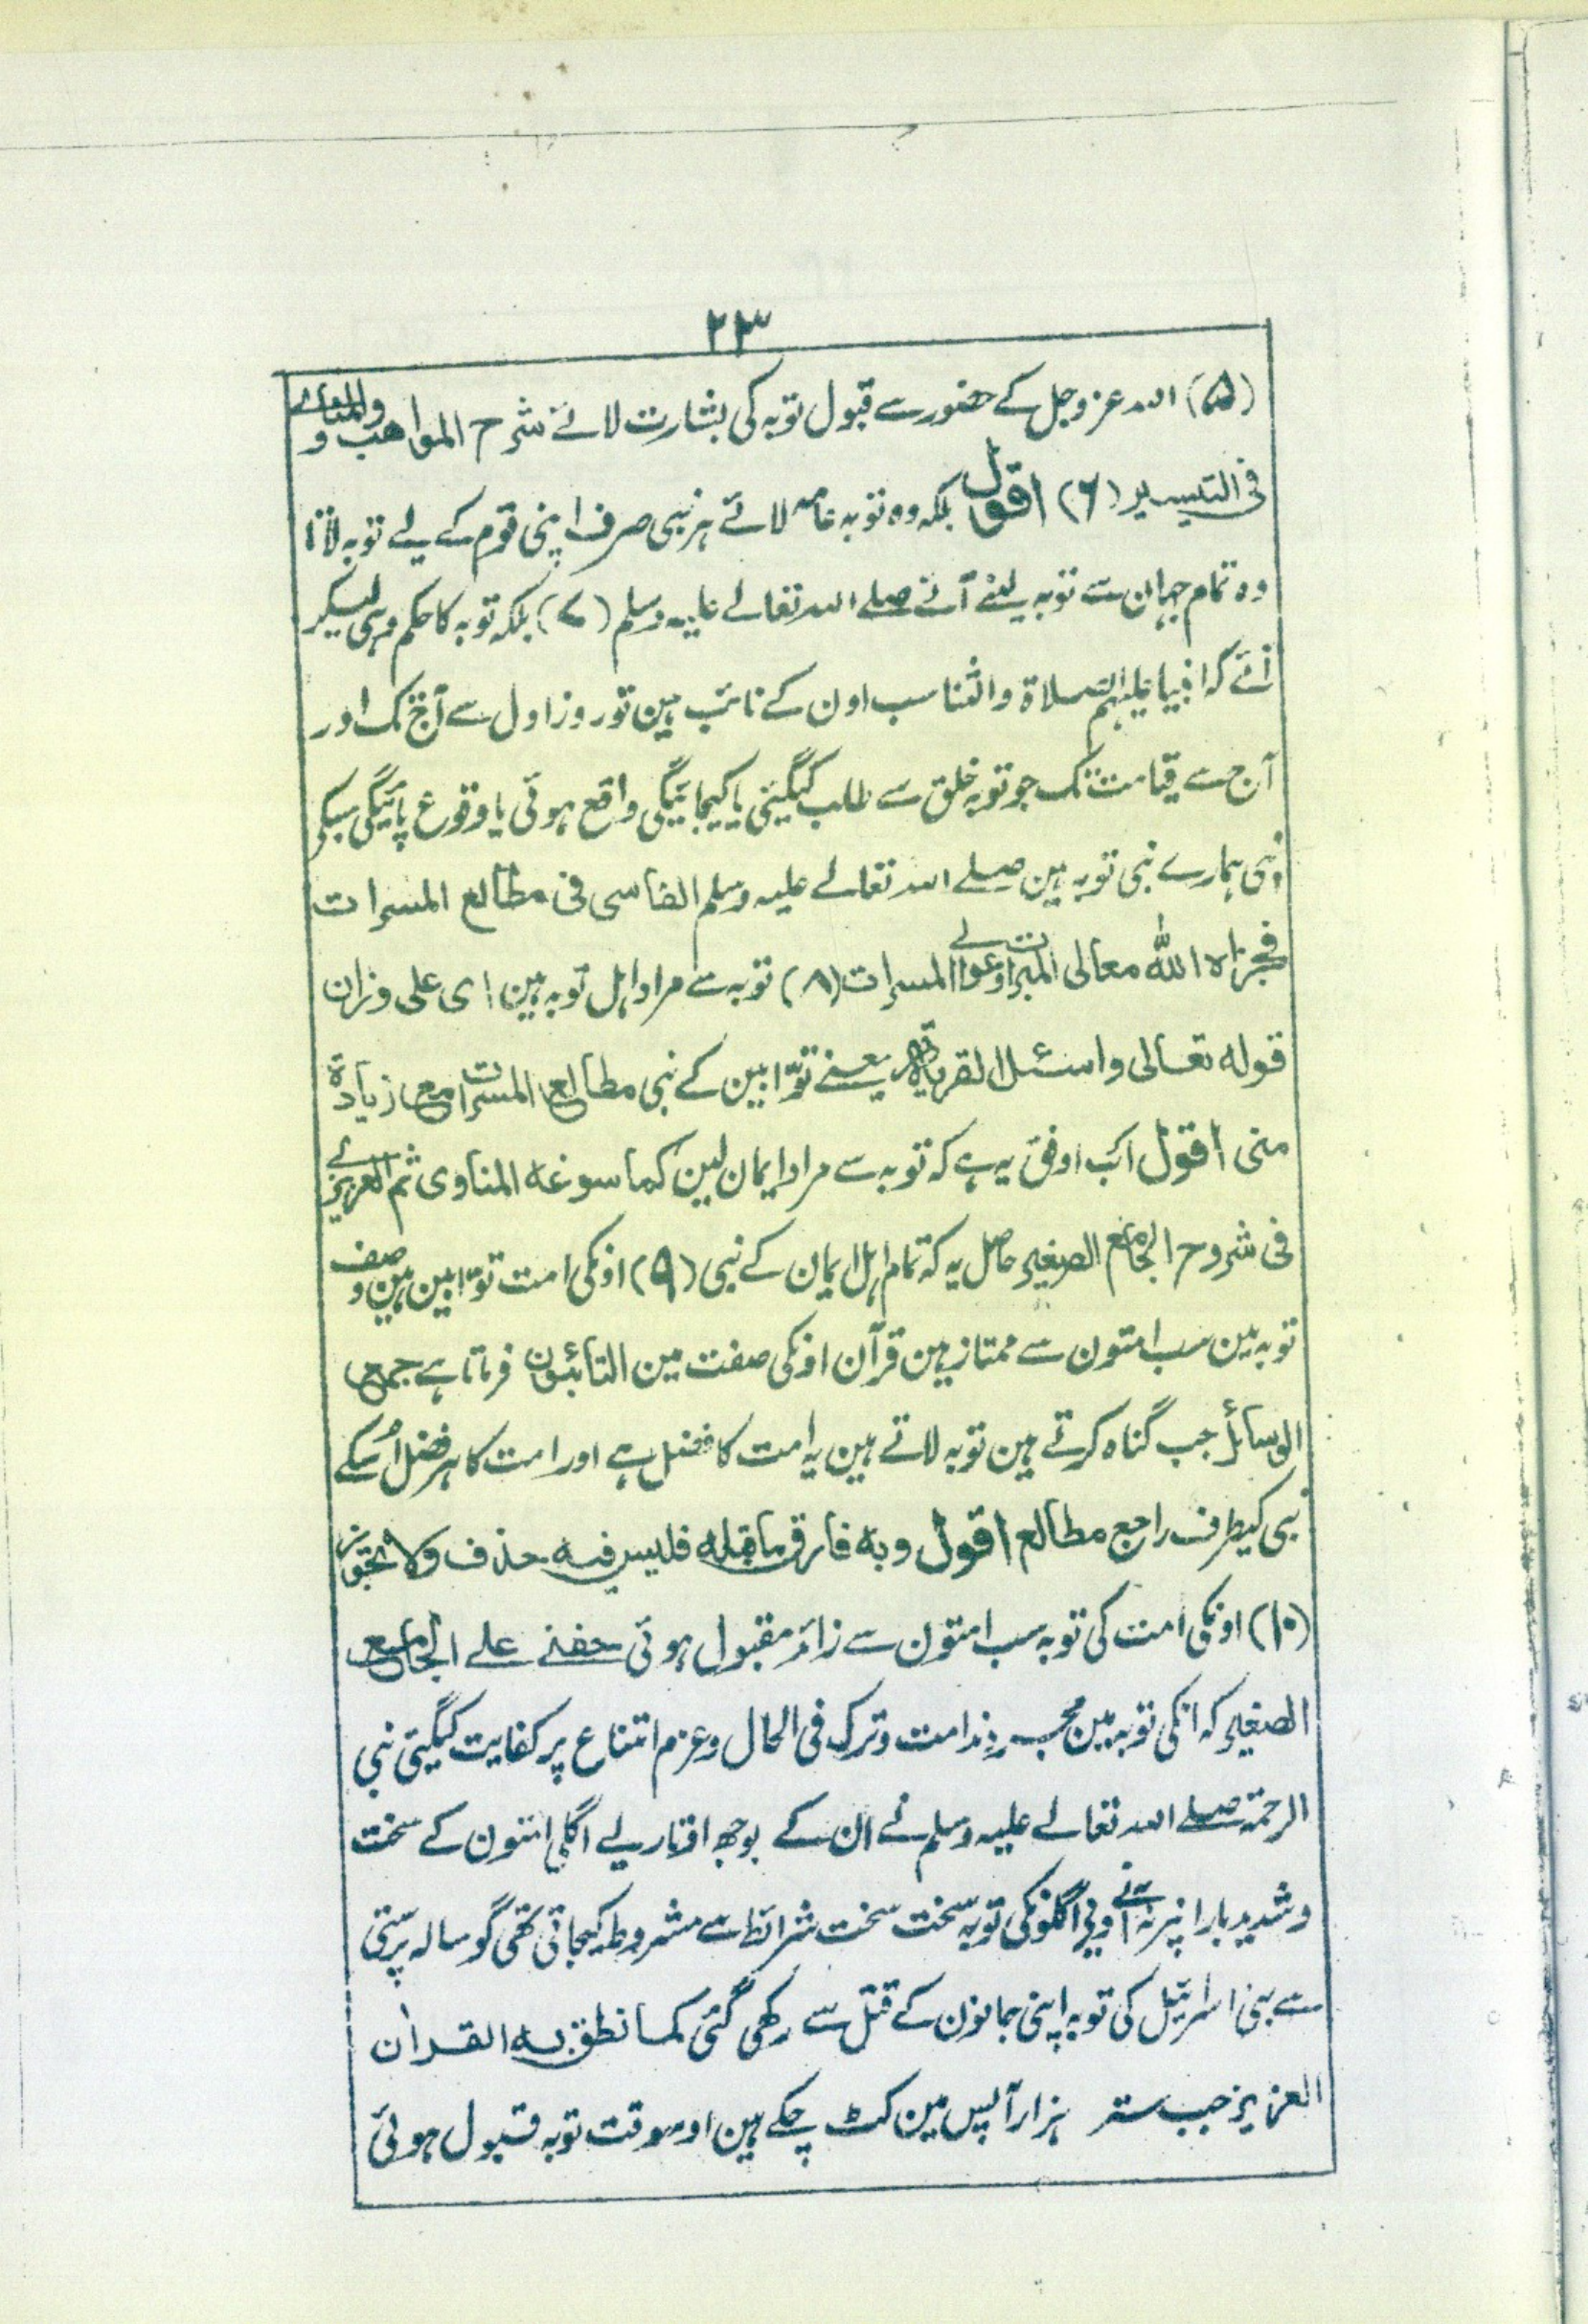 ۲۳
(۵) اللہ عزوجل کے حضور سے قبول توبہ کی بشارت لائے شرح المواهب و والمناوے
فی التیسیر (۶) اقول بلکہ وہ توبہ عامہ لائے ہر نبی صرف اپنی قوم کے لیے توبہ لاتا
وہ تمام جہان سے توبہ لینے آئے صلے اللہ تعالے علیہ وسلم (۷) بلکہ توبہ کا حکم وہی لیکر
آئے کہ انبیا علیہم الصلاة والثنا سب اون کے نائب ہین تو روز اول سے آج تک اور
آج سے قیامت تک جو توبہ خلق سے طلب کیگئی یا کیجائیگی واقع ہوئی یا وقوع پائیگی سبکے
نبی ہمارے نبی توبہ ہین صلے اللہ تعالے علیہ وسلم الفاسی فی مطالع المسرات
فجزاه الله معالی المبرات وعوالی المسرات (۸) توبہ سے مراد اہل توبہ ہین ای علی وزان
قوله تعالی واسئل القریة یعنے توّابین کے نبی مطالع المسرات مع زیادة
منی اقول اب اوفق یہ ہے کہ توبہ سے مراد ایمان لین کما سوغه المناوی ثم العزیزے
فی شروح الجامع الصغیر حاصل یہ کہ تمام اہل ایمان کے نبی (۹) اونکی امت توّابین ہین وصف
توبہ مین سب امتون سے ممتاز ہین قرآن اونکی صفت مین التائبون فرماتا ہے جمع
الوسائل جب گناہ کرتے ہین توبہ لاتے ہین یہ امت کا فضل ہے اور امت کا ہر فضل اُسکے
نبی کیطرف راجع مطالع اقول وبه فارق ما قبله فلیس فیه حذف ولا تجوز
(۱۰) اونکی امت کی توبہ سب امتون سے زائد مقبول ہوئی حفنی علے الجامع
الصغیر کہ انکی توبہ مین مجرد ندامت وترک فی الحال وعزم امتناع پر کفایت کیگئی نبی
الرحمۃ صلے اللہ تعالے علیہ وسلم نے ان کے بوجھ اوتار لیے اگلی امتون کے سخت
وشدید بار انپر نہ آنے دیے اگلونکی توبہ سخت سخت شرائط سے مشروط کیجاتی تھی گوسالہ پرستی
سے بنی اسرائیل کی توبہ اپنی جانون کے قتل سے رکھی گئی کما نطق به القران
العزیز جب ستر ہزار آپس مین کٹ چکے ہین اوسوقت توبہ قبول ہوئی